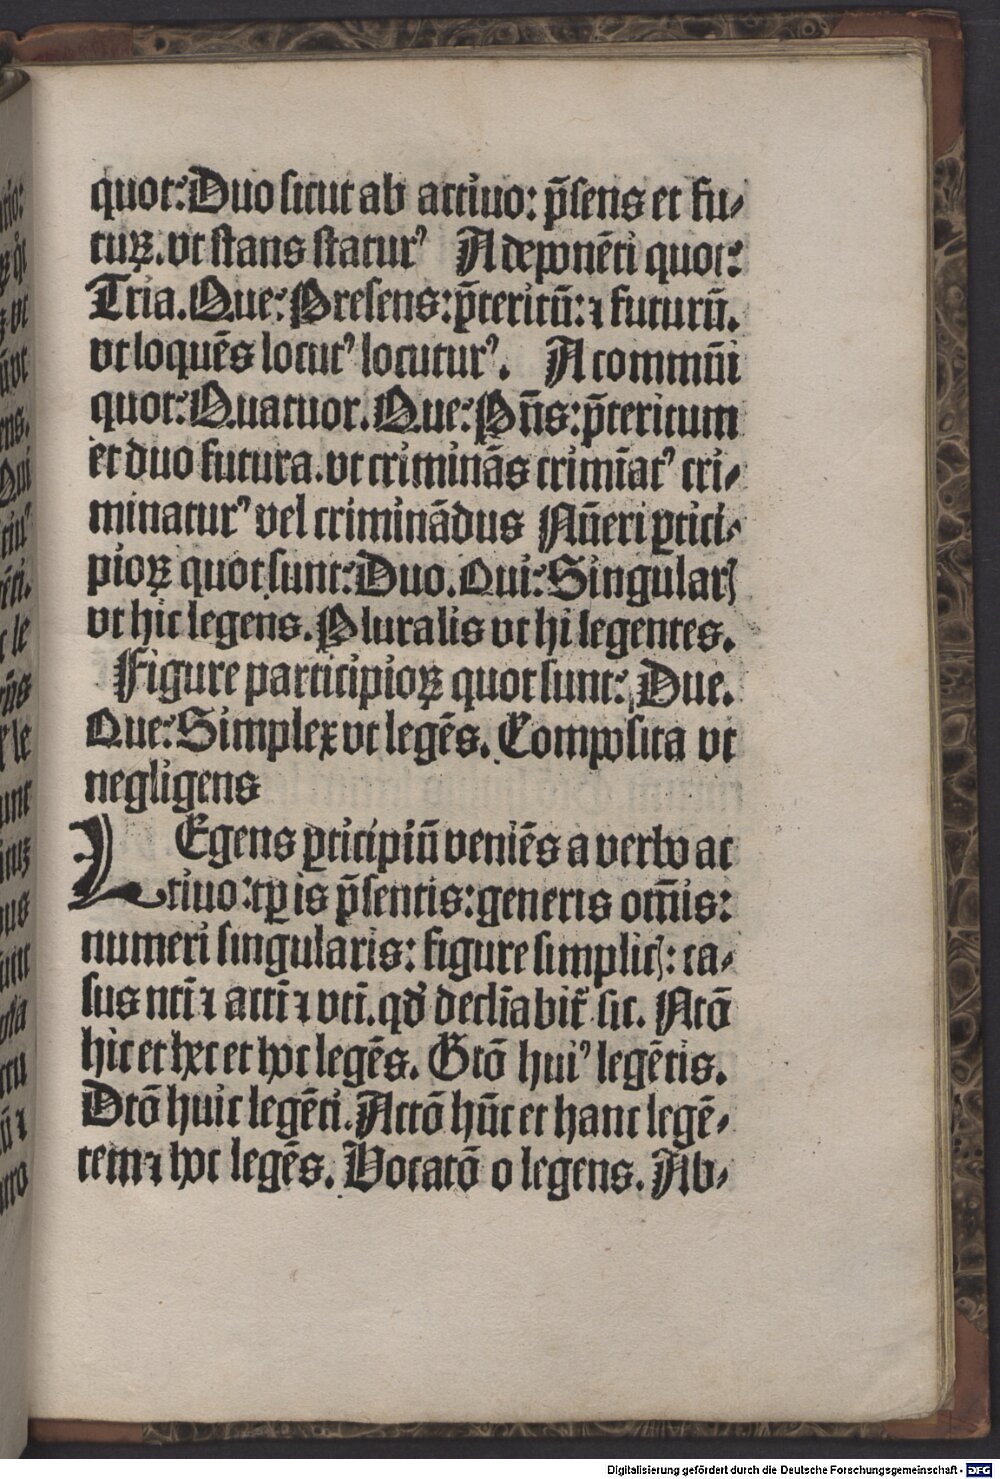 quot: Duo sicut ab actiuo: p̄sens et fu⸗
turꝝ. vt stans staturꝰ A deponēti quot:
Tria. Que: Presens: p̄teritū: ⁊ futurū.
vt loquēs locutꝰ locuturꝰ. A commūi
quot: Quatuor. Que: Pn̄s: p̄teritum
et duo futura. vt criminās crimīatꝰ cri⸗
minaturꝰ vel criminādus Nūeri ꝑtici⸗
pioꝝ quot sunt: Duo. Qui: Singularꝭ
vt hic legens. Pluralis vt hi legentes.
Figure participioꝝ quot sunt: Due.
Que: Simplex vt legēs. Composita vt
negligens
LEgens ꝑticipiū veniēs a verbo ac
tiuo: tꝑis p̄sentis: generis om̄is:
numeri singularis: figure simplicꝭ: ca⸗
sus nti̅ ⁊ acti̅ ⁊ vti̅. qd̓ declīabit̃ sic. Ntō
hic et hec et hoc legēs. Gtō huiꝰ legētis.
Dtō huic legēti. Actō hūc et hanc legē⸗
tem ⁊ hoc legēs. Vocatō o legens. Ab⸗
Digitalisierung gefördert durch die Deutsche Forschungsgemeinschaft - DFG